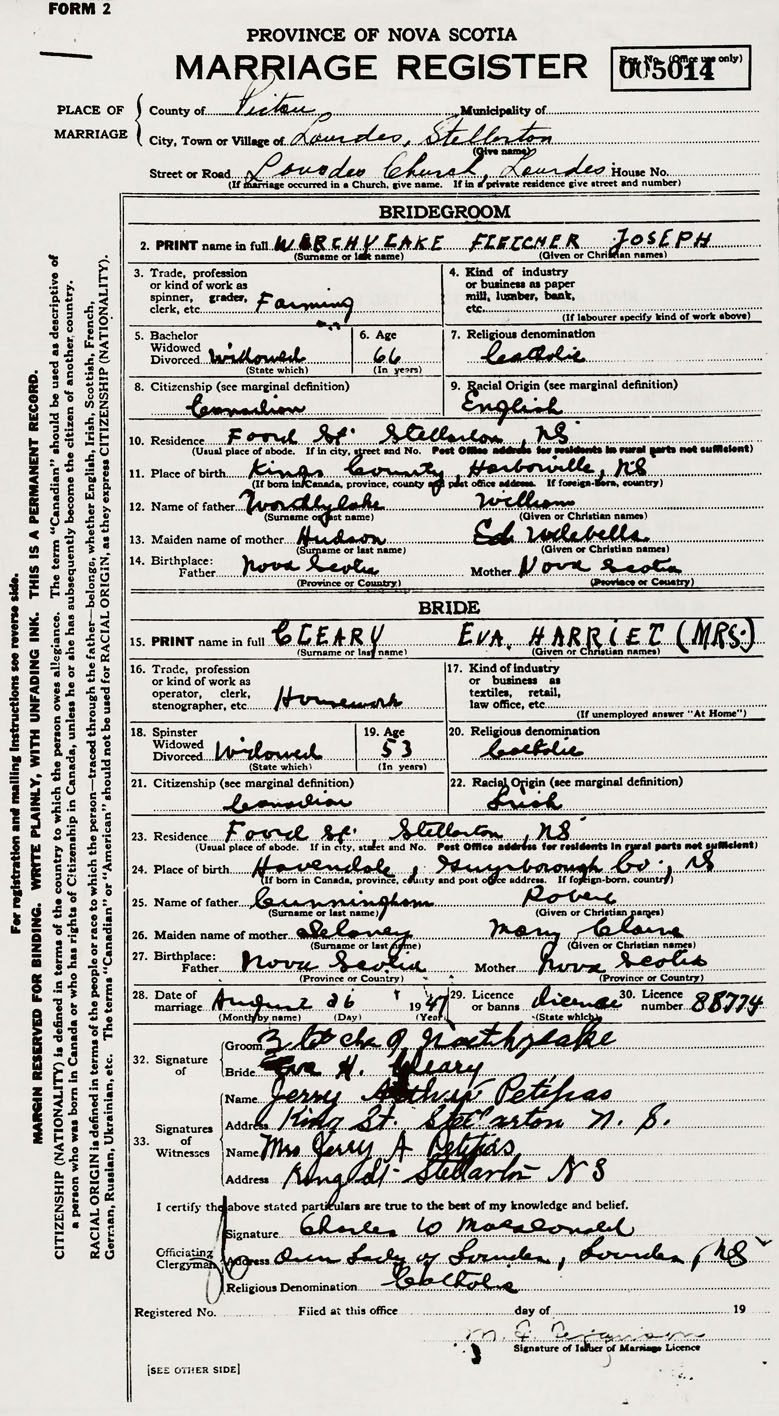 FORM 2
PROVINCE OF NOVA SCOTIA
MARRIAGE REGISTER
Reg. No. (Office use only)
005014
PLACE OF MARRIAGE
County of Pictou Municipality of
City, Town or Village of Lourdes, Stellarton
(Give name)
Street or Road Lourdes Church, Lourdes House No.
(If marriage occurred in a Church, give name. If in a private residence give street and number)
BRIDEGROOM
2. PRINT name in full WORTHYLAKE FLETCHER JOSEPH
(Surname or last name) (Given or Christian names)
3. Trade, profession or kind of work as spinner, grader, clerk, etc. Farming
4. Kind of industry or business as paper mill, lumber, bank, etc.
(If labourer specify kind of work above)
5. Bachelor Widowed Divorced Widowed
(State which)
6. Age 66
(In years)
7. Religious denomination
Catholic
8. Citizenship (see marginal definition)
Canadian
9. Racial Origin (see marginal definition)
English
10. Residence Foord St. Stellarton, NS
(Usual place of abode. If in city, street and No. Post Office address for residents in rural parts not sufficient)
11. Place of birth Kings County, Harborville, NS
(If born in Canada, province, county and post office address. If foreign-born, country)
12. Name of father Worthylake William
(Surname or last name) (Given or Christian names)
13. Maiden name of mother Hudson
(Surname or last name) (Given or Christian names)
14. Birthplace: Father Nova Scotia Mother Nova Scotia
(Province or Country) (Province or Country)
BRIDE
15. PRINT name in full CLEARY EVA HARRIET (MRS.)
(Surname or last name) (Given or Christian names)
16. Trade, profession or kind of work as operator, clerk, stenographer, etc. Housework
17. Kind of industry or business as textiles, retail, law office, etc.
(If unemployed answer "At Home")
18. Spinster Widowed Divorced Widowed
(State which)
19. Age 53
(In years)
20. Religious denomination
Catholic
21. Citizenship (see marginal definition)
Canadian
22. Racial Origin (see marginal definition)
Irish
23. Residence Foord St., Stellarton, NS
(Usual place of abode. If in city, street and No. Post Office address for residents in rural parts not sufficient)
24. Place of birth Havendale, Guysborough Co., NS
(If born in Canada, province, county and post office address. If foreign-born, country)
25. Name of father Cunningham Robert
(Surname or last name) (Given or Christian names)
26. Maiden name of mother Delaney Mary Claire
(Surname or last name) (Given or Christian names)
27. Birthplace: Father Nova Scotia Mother Nova Scotia
(Province or Country) (Province or Country)
28. Date of marriage August 26 1947
(Month by name) (Day) (Year)
29. Licence or banns License
(State which)
30. Licence number 88774
32. Signature of
Groom
Bride Eva H. Cleary
33. Signatures of Witnesses
Name Jerry Arthur Petipas
Address King St. Stellarton N. S.
Name Mrs Jerry A Petipas
Address King St Stellarton N S
I certify the above stated particulars are true to the best of my knowledge and belief.
Officiating Clergyman
Signature Charles W MacDonald
Address Our Lady of Lourdes, Lourdes, NS
Religious Denomination Catholic
Registered No. Filed at this office day of 19
M. F. Ferguson
Signature of Issuer of Marriage Licence
[SEE OTHER SIDE]
For registration and mailing instructions see reverse side.
MARGIN RESERVED FOR BINDING. WRITE PLAINLY, WITH UNFADING INK. THIS IS A PERMANENT RECORD.
CITIZENSHIP (NATIONALITY) is defined in terms of the country to which the person owes allegiance. The term "Canadian" should be used as descriptive of
a person who was born in Canada or who has rights of Citizenship in Canada, unless he or she has subsequently become the citizen of another country.
RACIAL ORIGIN is defined in terms of the people or race to which the person—traced through the father—belongs, whether English, Irish, Scottish, French,
German, Russian, Ukrainian, etc. The terms "Canadian" or "American" should not be used for RACIAL ORIGIN, as they express CITIZENSHIP (NATIONALITY).